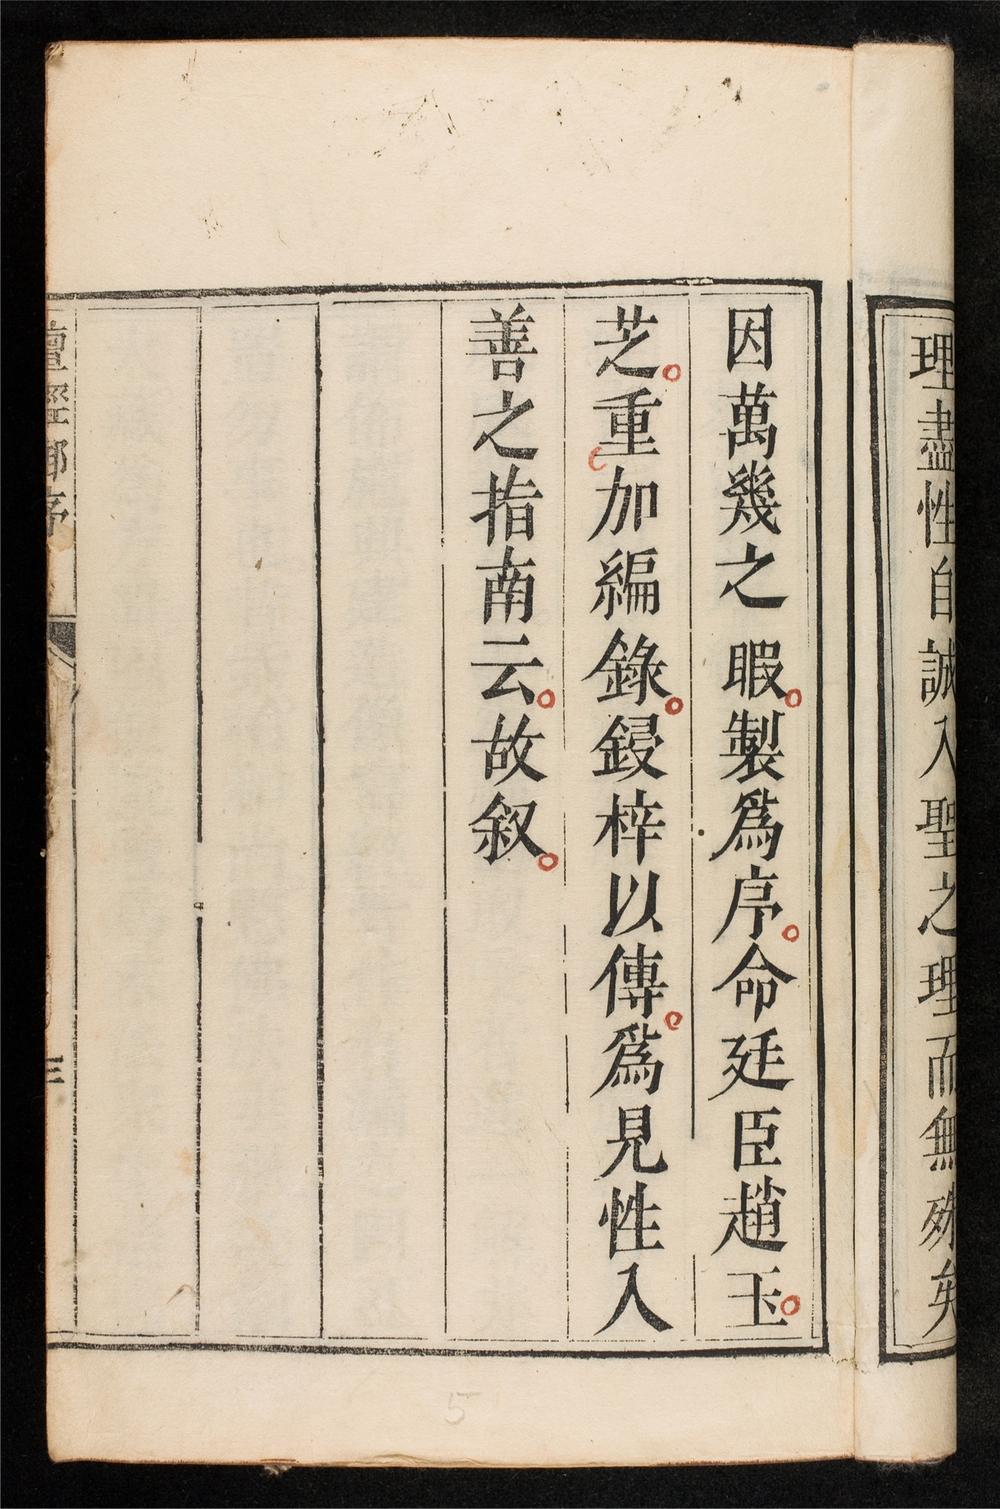 理盡性自誠入聖之理而無殊矣
因萬幾之暇製爲序命廷臣趙玉
芝重加編錄鋟梓以傳爲見性入
善之指南云故叙
壇經御序
三
5